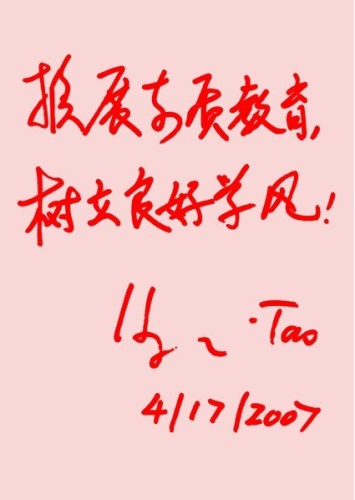 拓展素质教育,
树立良好学风!
Tao
4/17/2007